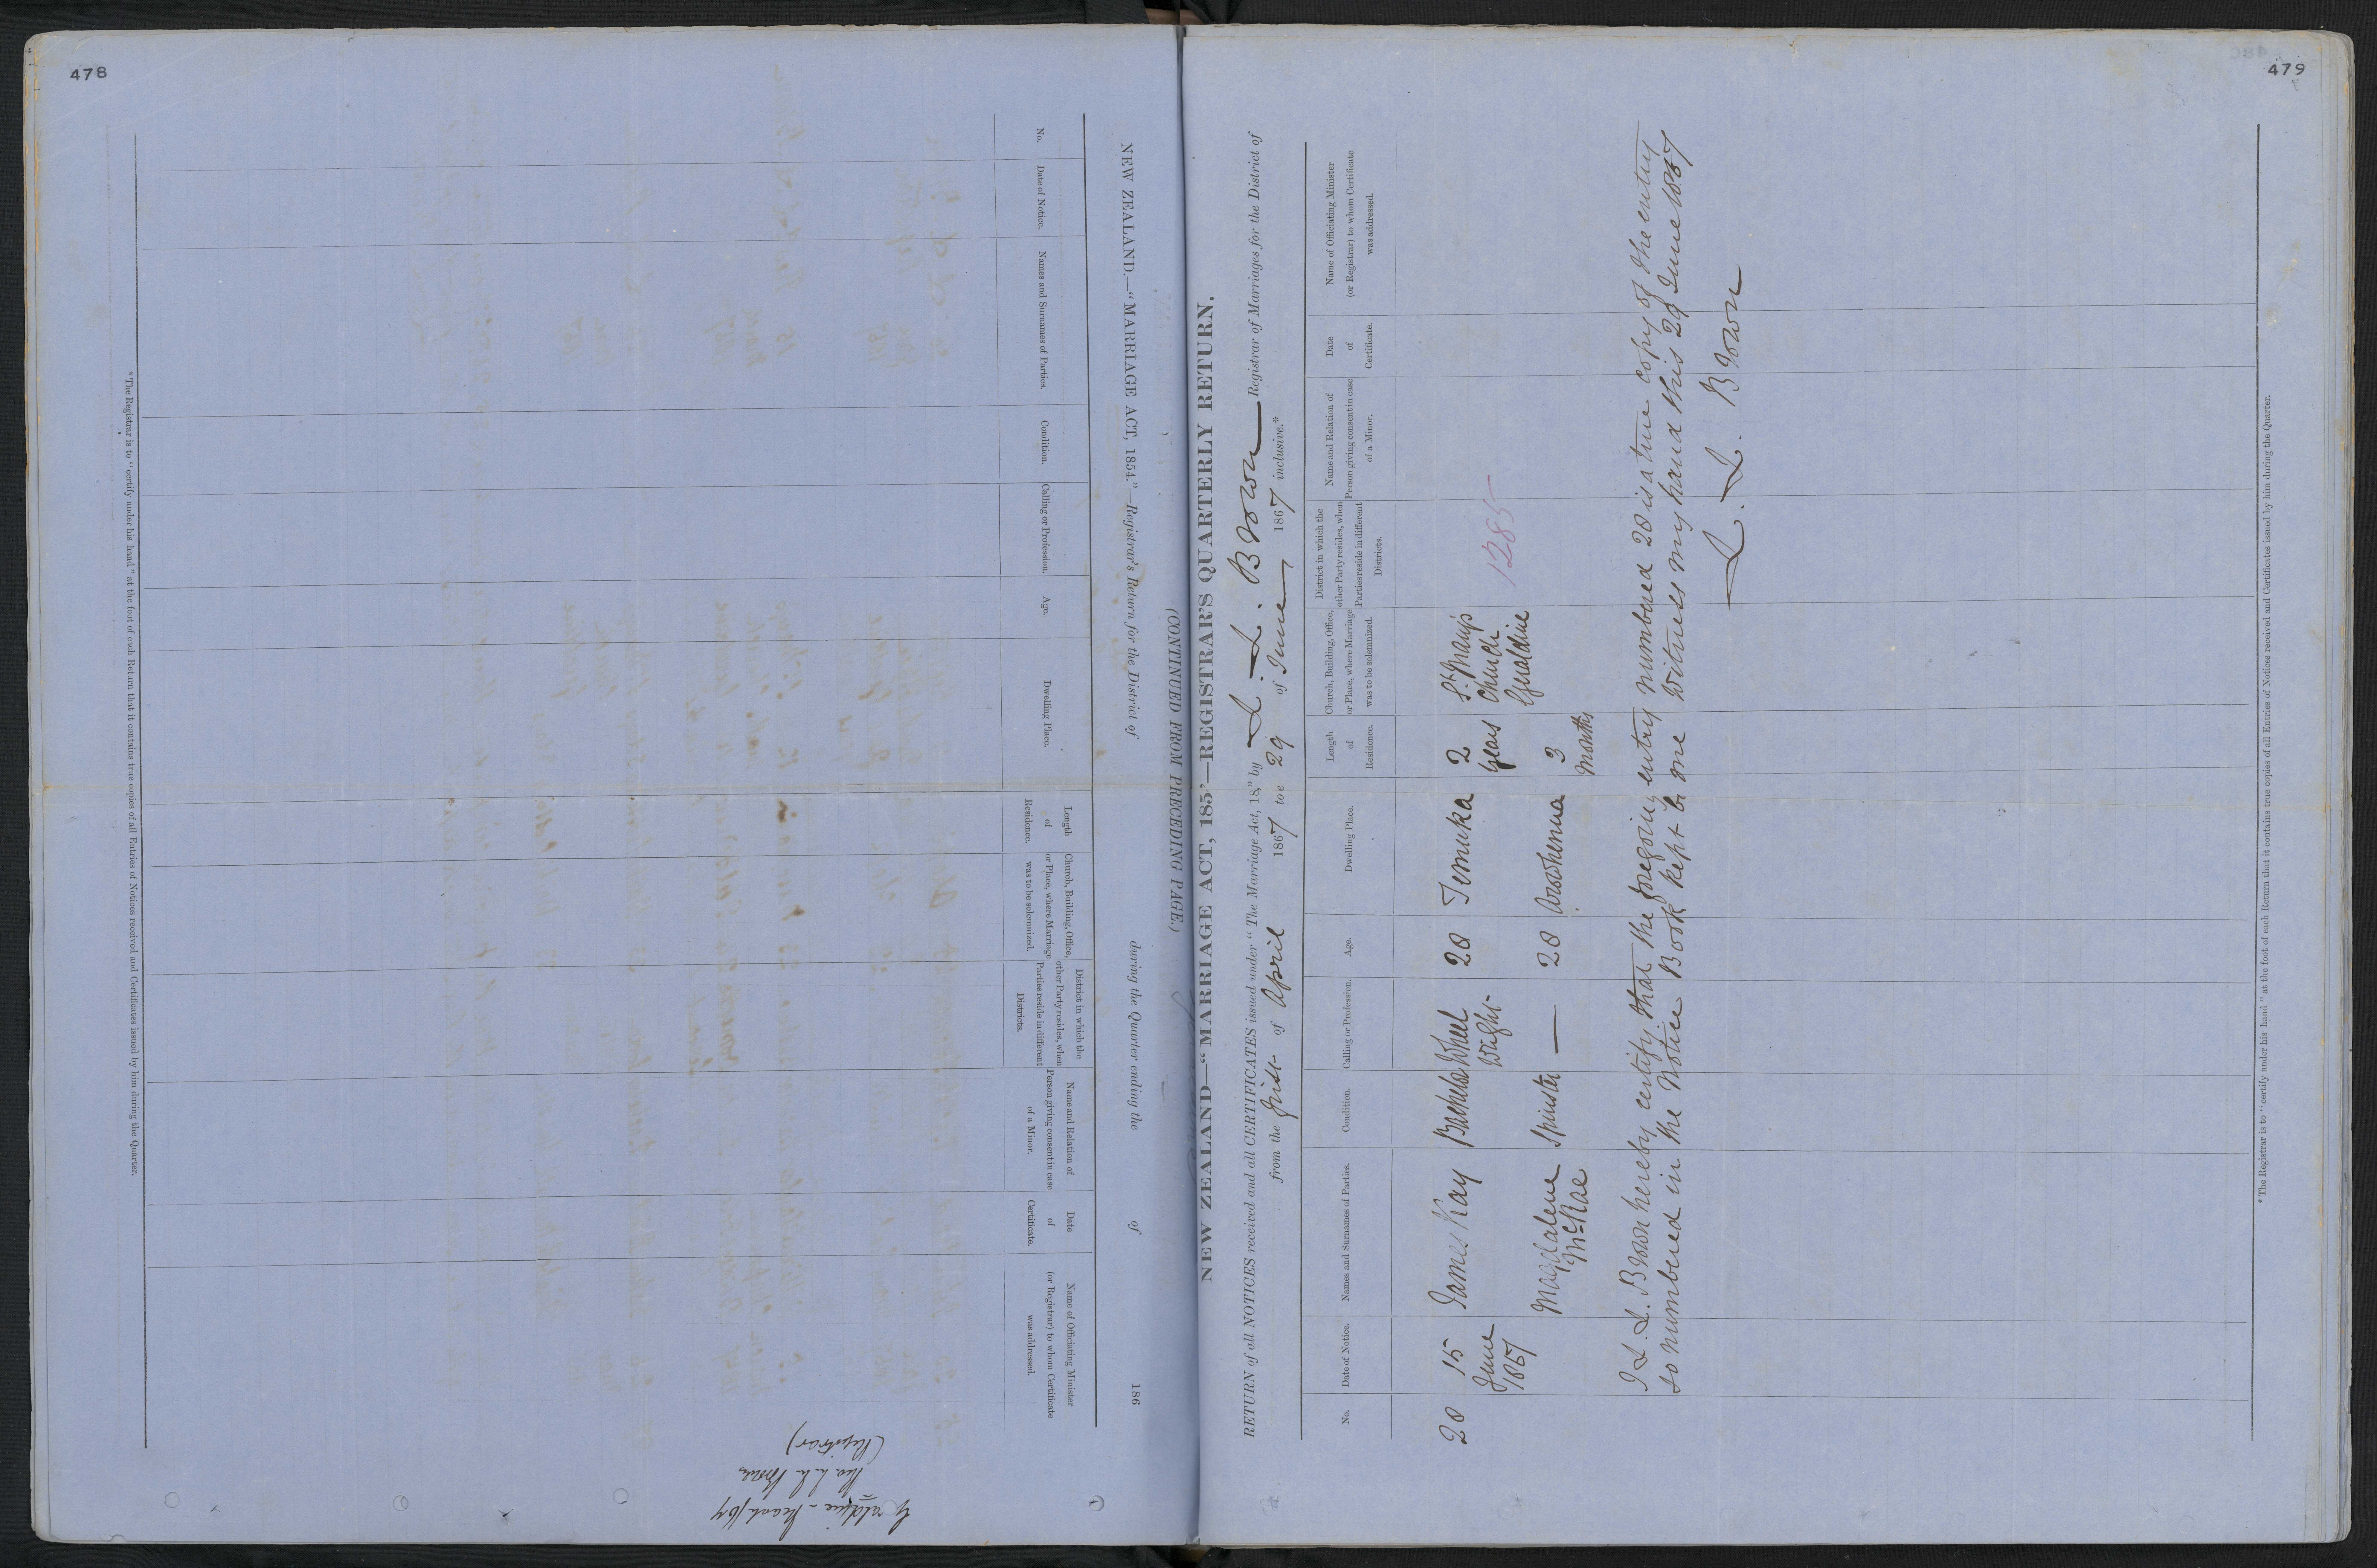 478
NEW ZEALAND.—"MARRIAGE ACT, 1854."—Registrar's Return for the District of during the Quarter ending the of 186
(CONTINUED FROM PRECEDING PAGE.)
No.
Date of Notice.
Names and Surnames of Parties.
Condition.
Calling or Profession.
Age.
Dwelling Place.
Length of Residence.
Church, Building, Office, or Place, where Marriage was to be solemnized.
District in which the other Party resides, when Parties reside in different Districts.
Name and Relation of Person giving consent in case of a Minor.
Date of Certificate.
Name of Officiating Minister (or Registrar) to whom Certificate was addressed.
* The Registrar is to "certify under his hand" at the foot of each Return that it contains true copies of all Entries of Notices received and Certificates issued by him during the Quarter.
(Registrar)
479
NEW ZEALAND—"MARRIAGE ACT, 185'—REGISTRAR'S QUARTERLY RETURN.
RETURN of all NOTICES received and all CERTIFICATES issued under "The Marriage Act, 18," by L. L. Brown Registrar of Marriages for the District of
from the first of April 1867 to 29 of June 1867 inclusive.*
No.
Date of Notice.
Names and Surnames of Parties.
Condition.
Calling or Profession.
Age.
Dwelling Place.
Length of Residence.
Church, Building, Office, or Place, where Marriage was to be solemnized.
District in which the other Party resides, when Parties reside in different Districts.
Name and Relation of Person giving consent in case of a Minor.
Date of Certificate.
Name of Officiating Minister (or Registrar) to whom Certificate was addressed.
20 15 James Kay Bachelor Wheel 28 Temuka 2 St. Mary's
June Wright years Church
1867 Geraldine
1285
Magdalene Spinster — 20 Arowhenua 3
McRae months
I L. L. Brown hereby certify that the foregoing entry numbered 20 is a true copy of the entry
so numbered in the Notice Book kept by me Witness my hand this 29 June 1867
L. L. Brown
* The Registrar is to "certify under his hand" at the foot of each Return that it contains true copies of all Entries of Notices received and Certificates issued by him during the Quarter.